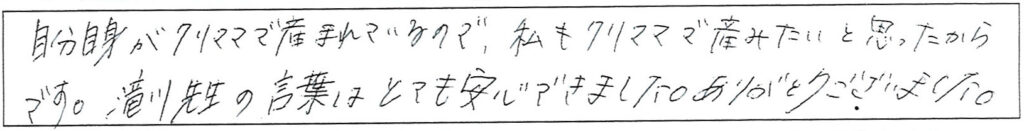 自分自身がクリママで産まれているので、私もクリママで産みたいと思ったから
です。滝川先生の言葉はとても安心できました。ありがとうございました。